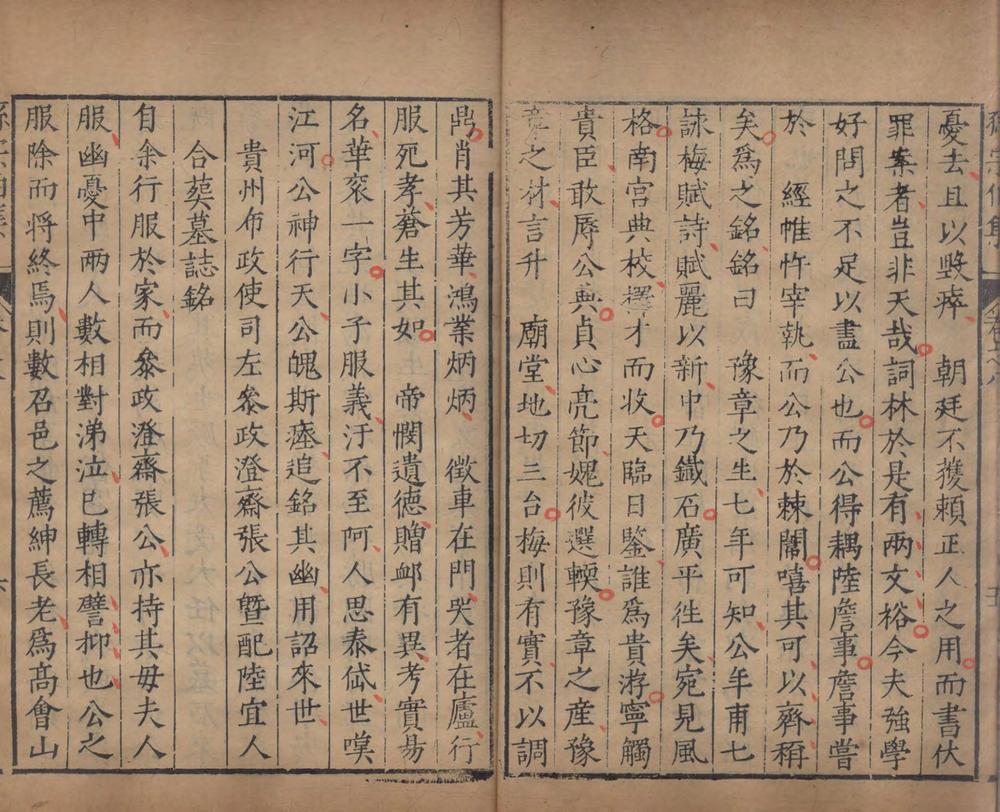 憂去且以毀瘁　朝廷不獲頼正人之用而書伏
罪案者豈非天哉詞林於是有兩文裕今夫強學
好問之不足以盡公也而公得耦陸詹事詹事嘗
於　經帷忤宰執而公乃於棘闈嘻其可以齊稱
矣爲之銘銘曰　豫章之生七年可知公年甫七
詠梅賦詩賦麗以新中乃鐵石廣平徃矣宛見風
格南宮典校擇才而收天臨日鑒誰爲貴游寧觸
貴臣敢辱公典貞心亮節媲彼選輭豫章之産豫
章之材言升　廟堂地切三台梅則有實不以調
鼎肖其芳華鴻業炳炳　徵車在門哭者在廬行
服死孝蒼生其如　帝憫遺德贈卹有異考實昜
名華衮一字小子服義汙不至阿人思泰岱世嘆
江河公神行天公魄斯瘞追銘其幽用詔來世
貴州布政使司左叅政澄齋張公曁配陸宜人
合葬墓誌銘
自余行服於家而叅政澄齋張公亦持其母夫人
服幽憂中兩人數相對涕泣已轉相譬抑也公之
服除而將終焉則數召邑之薦紳長老爲高會山